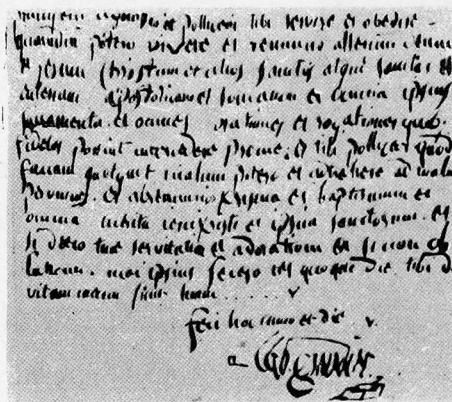 et polliceor tibi servire et obedire
quamdiu potero vivere et renuncio alterum deum
et jesum Christum et alios sanctos atque sanctas et
apostolicam et romanam et omnia ipsius
sacramenta et omnes orationes et rogationes quib.
fideles possint intercedere pro me, et tibi polliceor quod
faciam quotquot malum potero et attrahere ad mala
per omnes. et abrenuncio et baptismum et
omnia merita et ipsius sanctorum. et
si deero tuae et adorationi et si non ob
lationem mei ipsius fecero ter quoque die tibi d
vitam meam sicut tuam .....
feci hoc anno et die